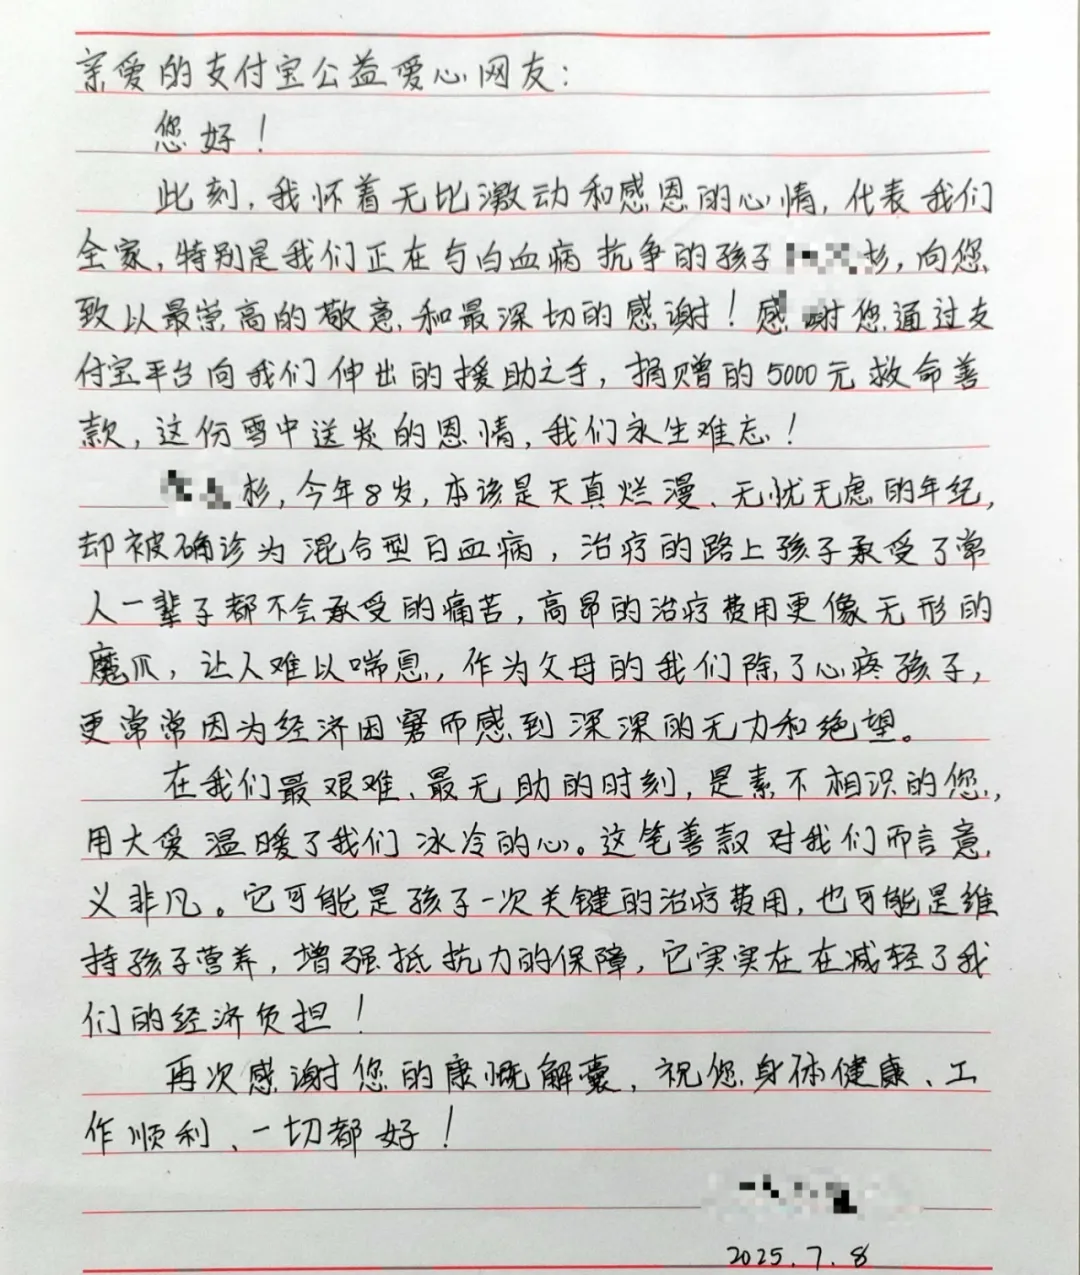 亲爱的支付宝公益爱心网友：
您好！
此刻，我怀着无比激动和感恩的心情，代表我们
全家，特别是我们正在与白血病抗争的孩子杉，向您
致以最崇高的敬意和最深切的感谢！感谢您通过支
付宝平台向我们伸出的援助之手，捐赠的5000元救命善
款，这份雪中送炭的恩情，我们永生难忘！
杉，今年8岁，本该是天真烂漫、无忧无虑的年纪，
却被确诊为混合型白血病，治疗的路上孩子承受了常
人一辈子都不会承受的痛苦，高昂的治疗费用更像无形的
魔爪，让人难以喘息，作为父母的我们除了心疼孩子，
更常常因为经济困窘而感到深深的无力和绝望。
在我们最艰难、最无助的时刻，是素不相识的您，
用大爱温暖了我们冰冷的心。这笔善款对我们而言意
义非凡。它可能是孩子一次关键的治疗费用，也可能是维
持孩子营养，增强抵抗力的保障，它实实在在减轻了我
们的经济负担！
再次感谢您的康慨解囊，祝您身体健康、工
作顺利、一切都好！
2025.7.8